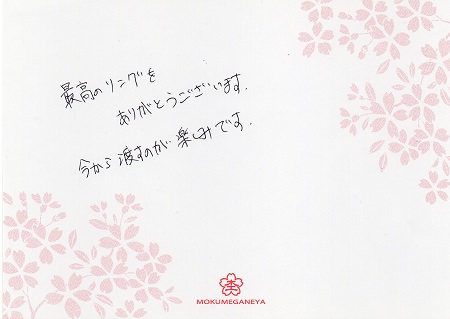 最高のリングを
ありがとうございます.
今から渡すのが楽しみです.
MOKUMEGANEYA